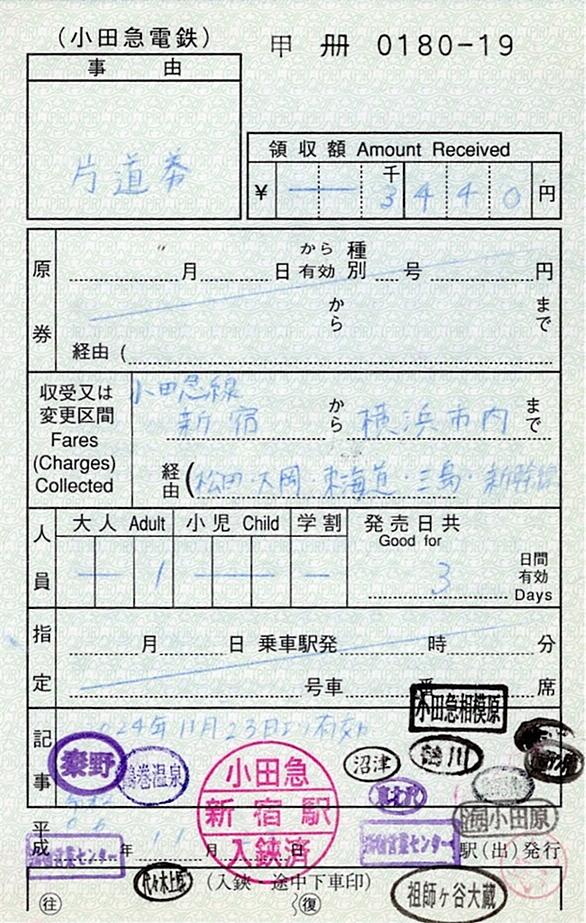 (小田急電鉄)
甲 册 0180-19
事 由
片道券
領収額 Amount Received
千
¥ 3 4 4 0 円
原券
月 日 から有効 種別 号 円
から まで
経由 (
収受又は変更区間
Fares (Charges) Collected
小田急線
新宿 から 横浜市内 まで
経由 (松田・大岡・東海道・三島・新幹線
人員
大人 Adult 小児 Child 学割 発売日共
Good for
1 3 日間有効 Days
指定
月 日 乗車駅発 時 分
号車 番 席
記事
2024年11月23日より有効
小田急相模原
秦野
鶴巻温泉
沼津
鶴川
小田急
新宿駅
入鋏済
小田原
平成 年 11 月 日 駅(出)発行
営業センター
営業センター
代々木上原
(入鋏 途中下車印)
祖師ヶ谷大蔵
往 復